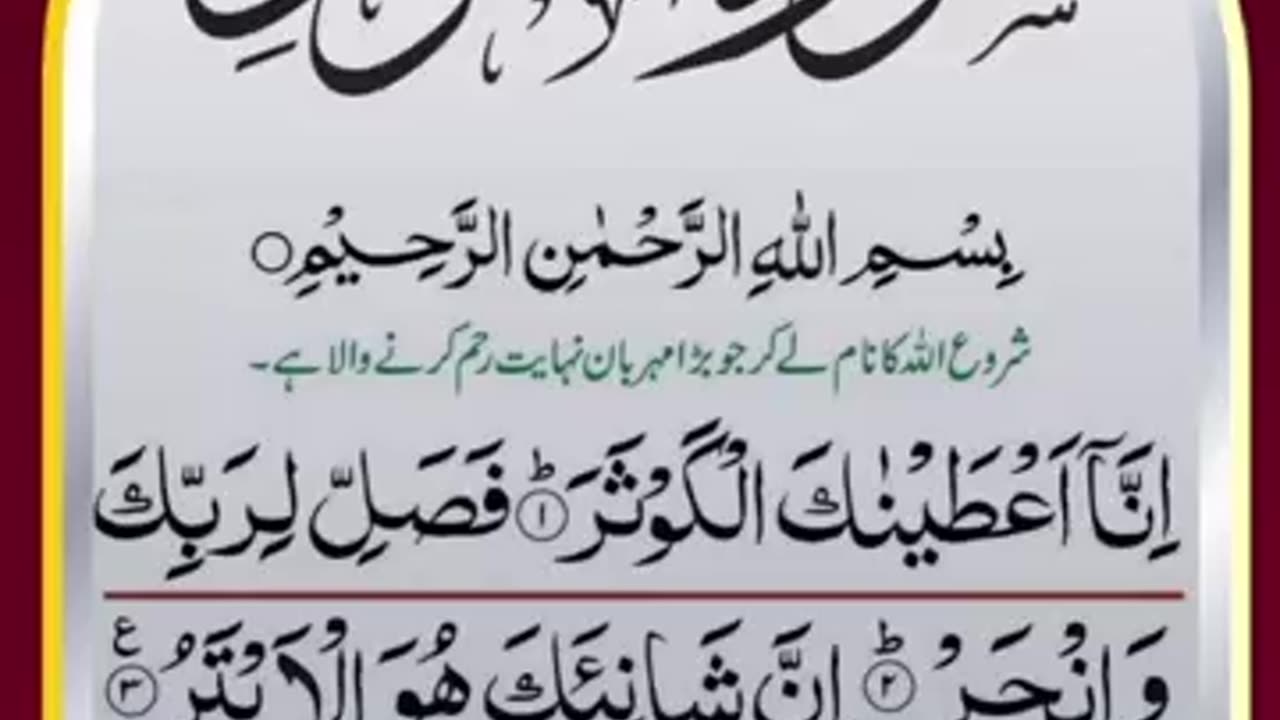 بِسْمِ اللهِ الرَّحْمٰنِ الرَّحِيْمِ○
شروع اللہ کا نام لے کر جو بڑا مہربان نہایت رحم کرنے والا ہے۔
اِنَّآ اَعْطَيْنٰكَ الْكَوْثَرَؕ۝۱ فَصَلِّ لِرَبِّكَ
وَانْحَرْؕ۝۲ اِنَّ شَانِئَكَ هُوَ الْاَبْتَرُ۝۳ ع